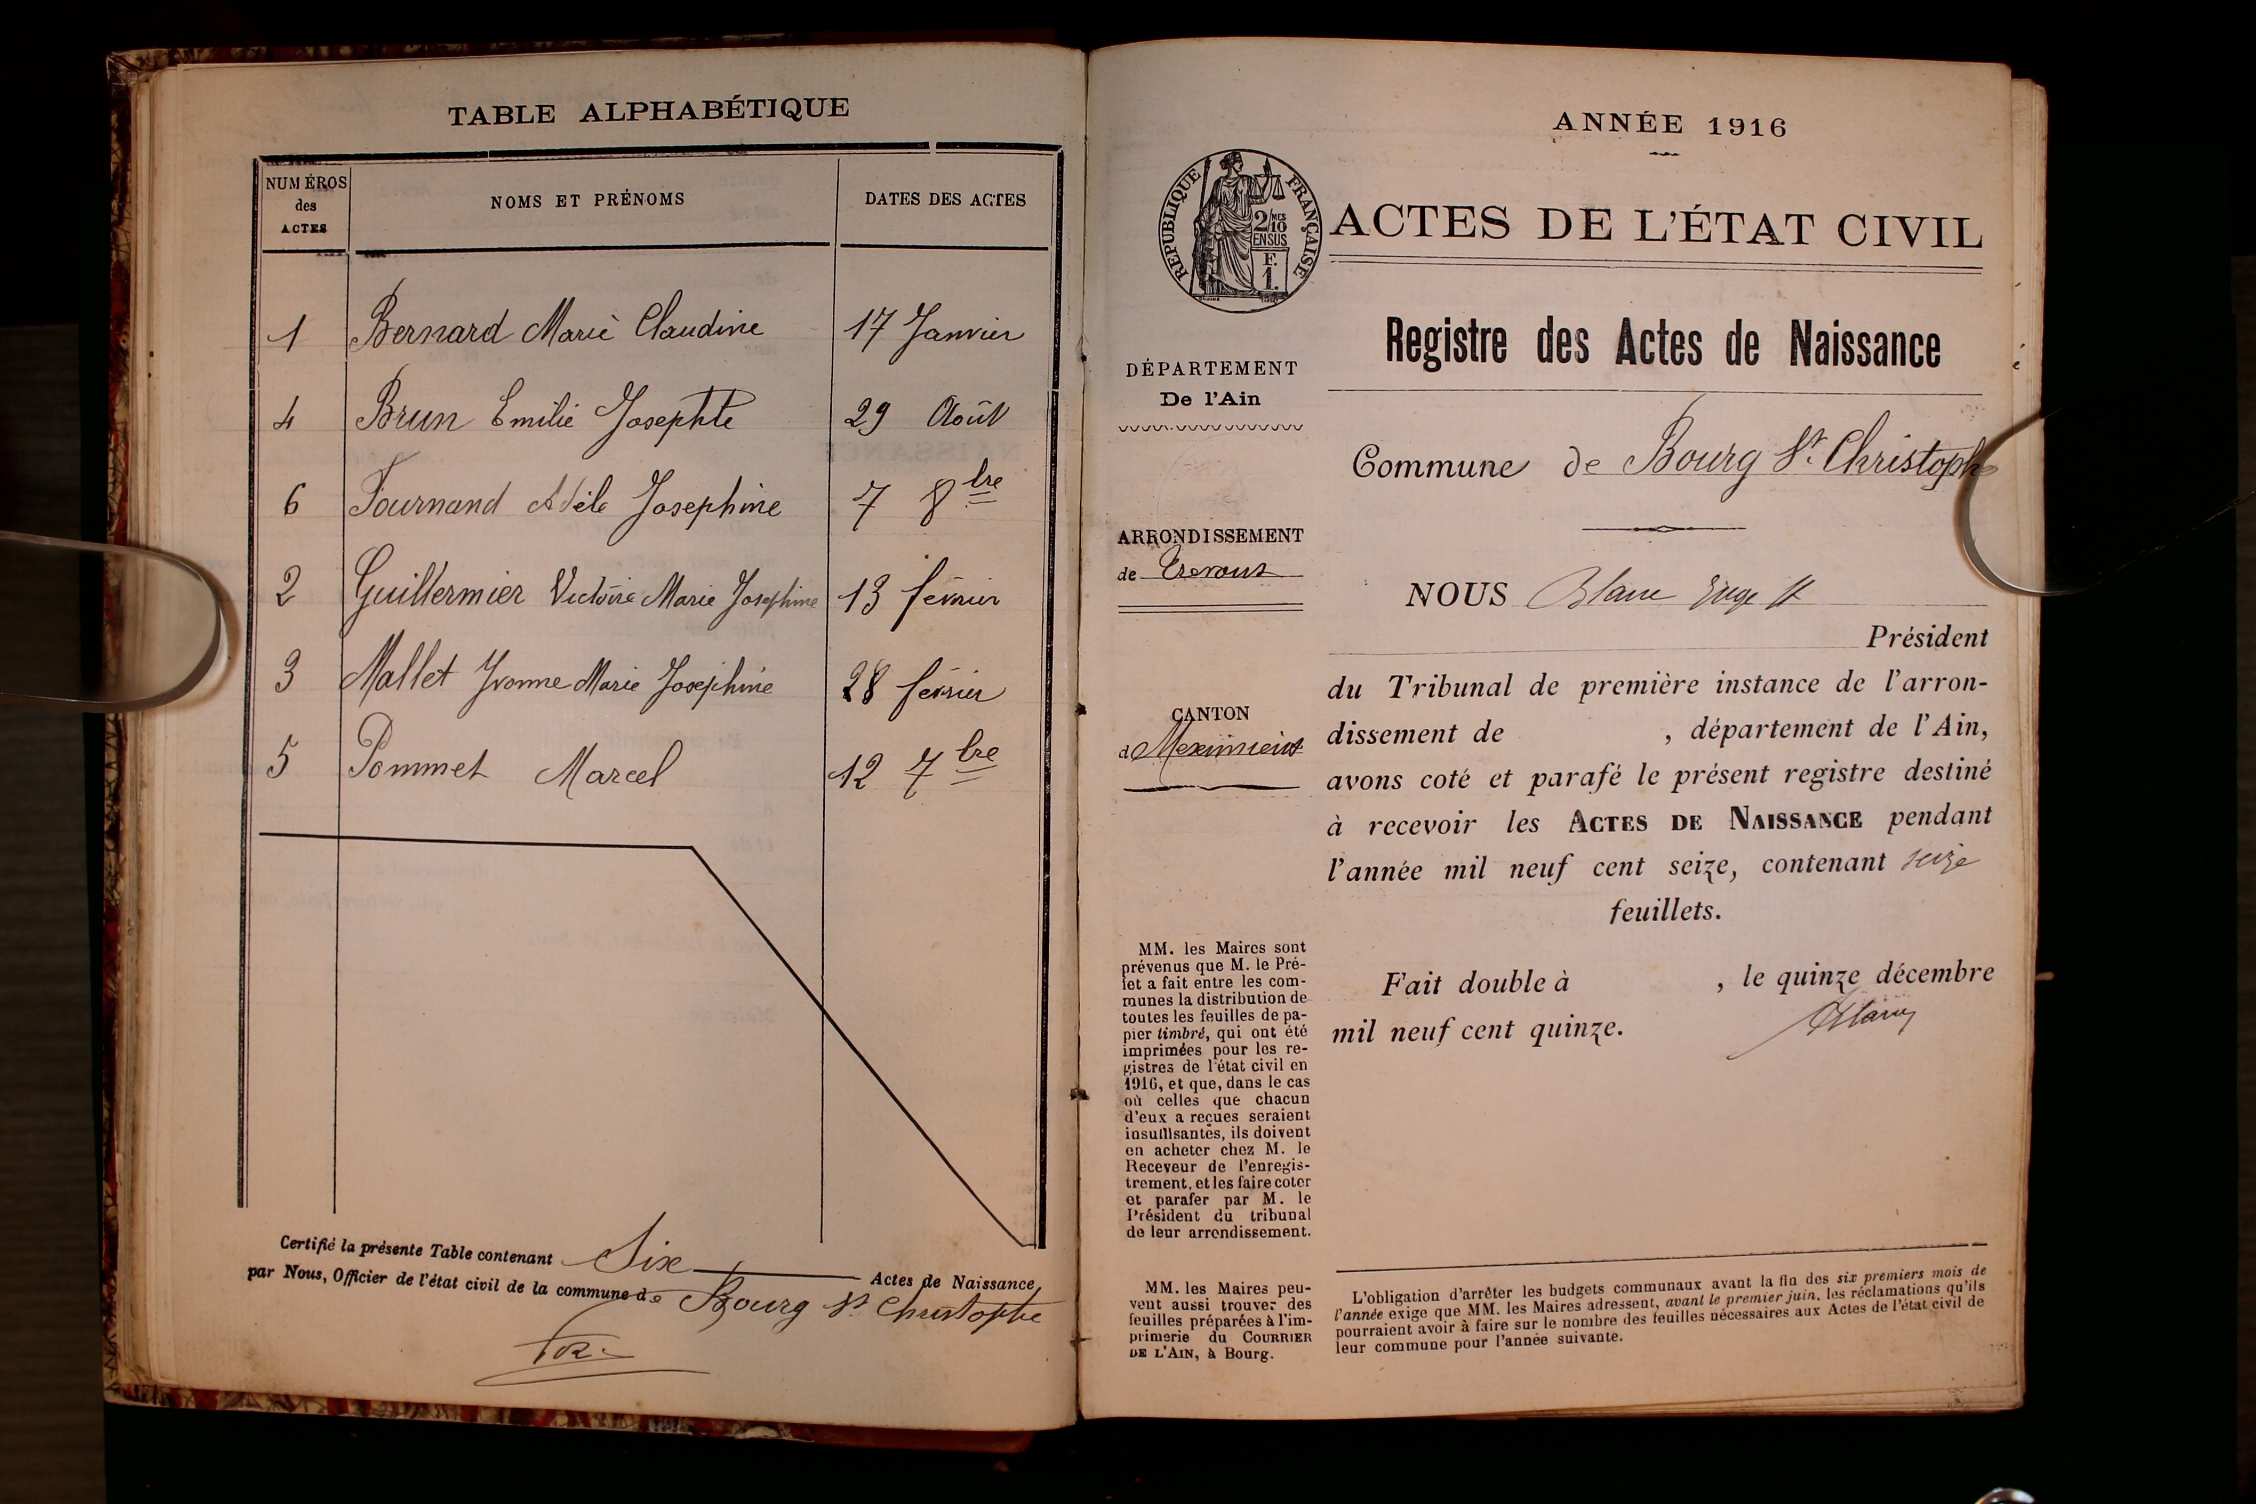 TABLE ALPHABÉTIQUE
NUMÉROS
des
ACTES
NOMS ET PRÉNOMS
DATES DES ACTES
1 Bernard Marie Claudine 17 Janvier
4 Brun Emilie Josephte 29 Août
6 Fournand Adèle Josephine 7 8bre
2 Guillermier Victoire Marie Josephine 13 février
3 Mallet Yvonne Marie Josephine 28 février
5 Pommet Marcel 12 7bre
Certifié la présente Table contenant Six Actes de Naissance
par Nous, Officier de l'état civil de la commune de Bourg St Christophe
ANNÉE 1916
RÉPUBLIQUE FRANÇAISE
2/10MES
EN SUS
F.
1.
ACTES DE L'ÉTAT CIVIL
Registre des Actes de Naissance
DÉPARTEMENT
De l'Ain
Commune de Bourg St. Christophe
ARRONDISSEMENT
de Trevoux
CANTON
d Meximieux
NOUS Blanc
Président
du Tribunal de première instance de l'arron-
dissement de , département de l'Ain,
avons coté et parafé le présent registre destiné
à recevoir les ACTES DE NAISSANCE pendant
l'année mil neuf cent seize, contenant seize
feuillets.
Fait double à , le quinze décembre
mil neuf cent quinze.
MM. les Maires sont
prévenus que M. le Pré-
fet a fait entre les com-
munes la distribution de
toutes les feuilles de pa-
pier timbré, qui ont été
imprimées pour les re-
gistres de l'état civil en
1916, et que, dans le cas
où celles que chacun
d'eux a reçues seraient
insuffisantes, ils doivent
en acheter chez M. le
Receveur de l'enregis-
trement, et les faire coter
et parafer par M. le
Président du tribunal
de leur arrondissement.
MM. les Maires peu-
vent aussi trouver des
feuilles préparées à l'im-
primerie du COURRIER
DE L'AIN, à Bourg.
L'obligation d'arrêter les budgets communaux avant la fin des six premiers mois de
l'année exige que MM. les Maires adressent, avant le premier juin, les réclamations qu'ils
pourraient avoir à faire sur le nombre des feuilles nécessaires aux Actes de l'état civil de
leur commune pour l'année suivante.